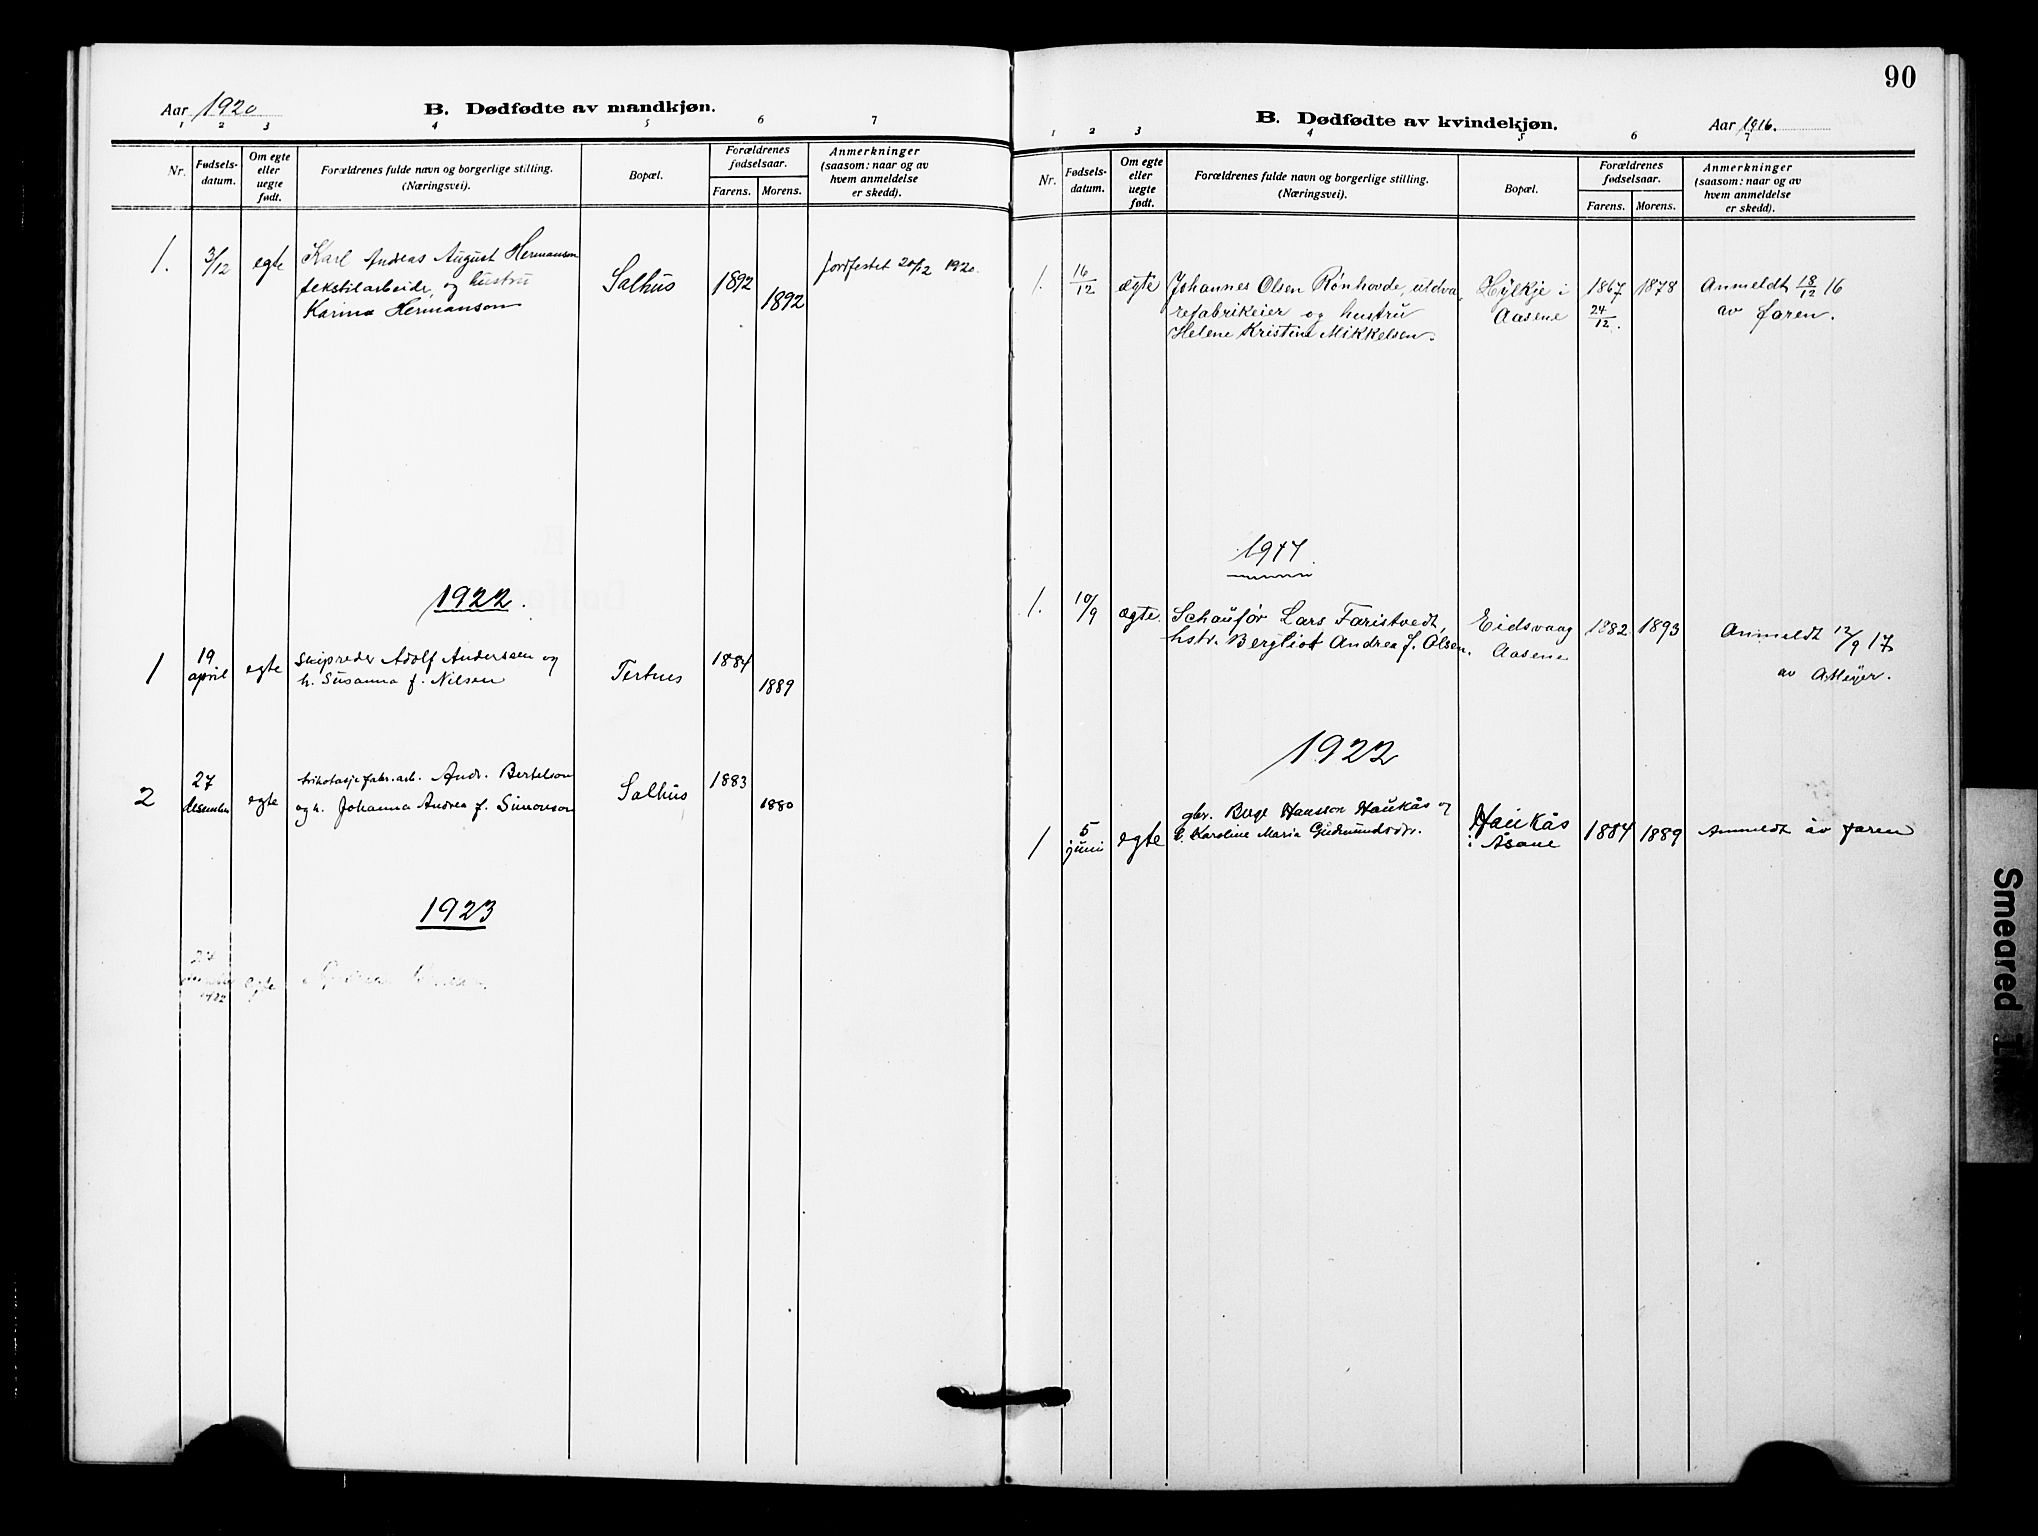 Aar 1920
B. Dødfødte av mandkjøn.
1 2 3 4 5 6 7
Nr.
Fødsels-
datum.
Om egte
eller
uegte
født.
Forældrenes fulde navn og borgerlige stilling.
(Næringsvei).
Bopæl.
Forældrenes
fødselsaar.
Farens. Morens.
Anmerkninger
(saasom: naar og av
hvem anmeldelse
er skedd).
1. 3/12 egte Karl Andreas August Hermanson
tekstilarbeide, og hustru
Karina Hermanson
Salhus 1892 1892
Jordfestet 20/12 1920.
1922.
1 19 april egte Skipreder Adolf Anderssen og
h. Susanna f. Nilsen
Tertnes 1884 1889
2 27 desember egte trikotasjefabr.arb. Andr. Bertelson
og h. Johanna Andrea f. Simonson
Salhus 1883 1880
1923
egte
90
B. Dødfødte av kvindekjøn.
Aar 1916.
1 2 3 4 5 6 7
Nr.
Fødsels-
datum.
Om egte
eller
uegte
født.
Forældrenes fulde navn og borgerlige stilling.
(Næringsvei).
Bopæl.
Forældrenes
fødselsaar.
Farens. Morens.
Anmerkninger
(saasom: naar og av
hvem anmeldelse
er skedd).
1. 16/12 ægte Johannes Olsen Rønhovde, uldva
refabrikeier og hustru
Helene Kristine Mikkelsen.
Hylkje i
Aasene
1867 24/12. 1878
Anmeldt 18/12 16
av faren.
1917.
1. 10/9 ægte. Schaufør Lars Faristvedt,
hstr. Bergliot Andrea f. Olsen.
Eidsvaag
Aasene
1882 1893
Anmeldt 12/9 17
av
1922
1 5 juni egte gbr. Berge Hansson Haukås og
h. Karoline Maria Gudmundsdr.
Haukås
i Åsane
1884 1889 Anmeldt av faren
Smeared